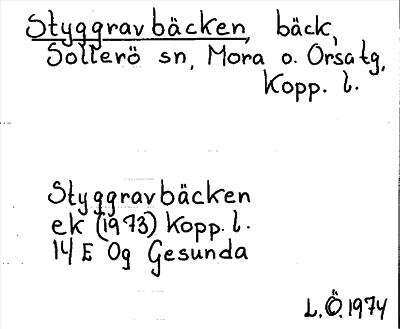 Styggravbäcken, bäck,
Sollerö sn, Mora o. Orsa tg,
Kopp. l.
Styggravbäcken
ek (1973) Kopp. l.
14 E 0g Gesunda
L. Ö. 1974